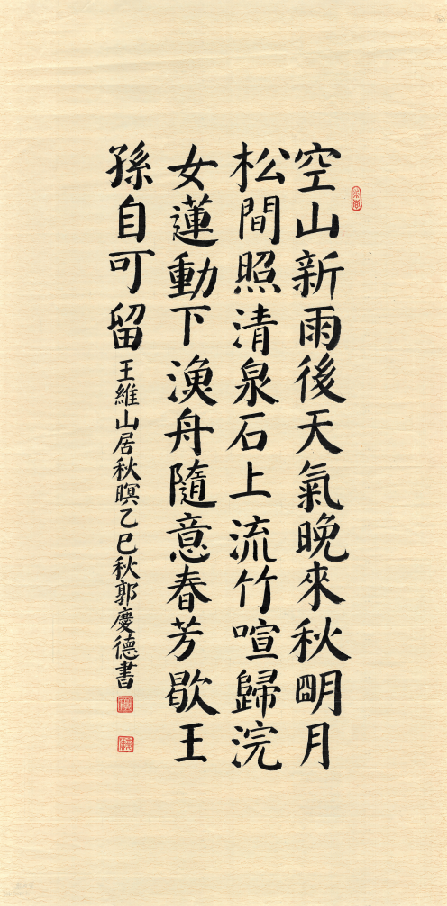 空山新雨後天氣晚來秋明月
松間照清泉石上流竹喧歸浣
女蓮動下漁舟隨意春芳歇王
孫自可留
王維山居秋暝乙巳秋郭慶德書